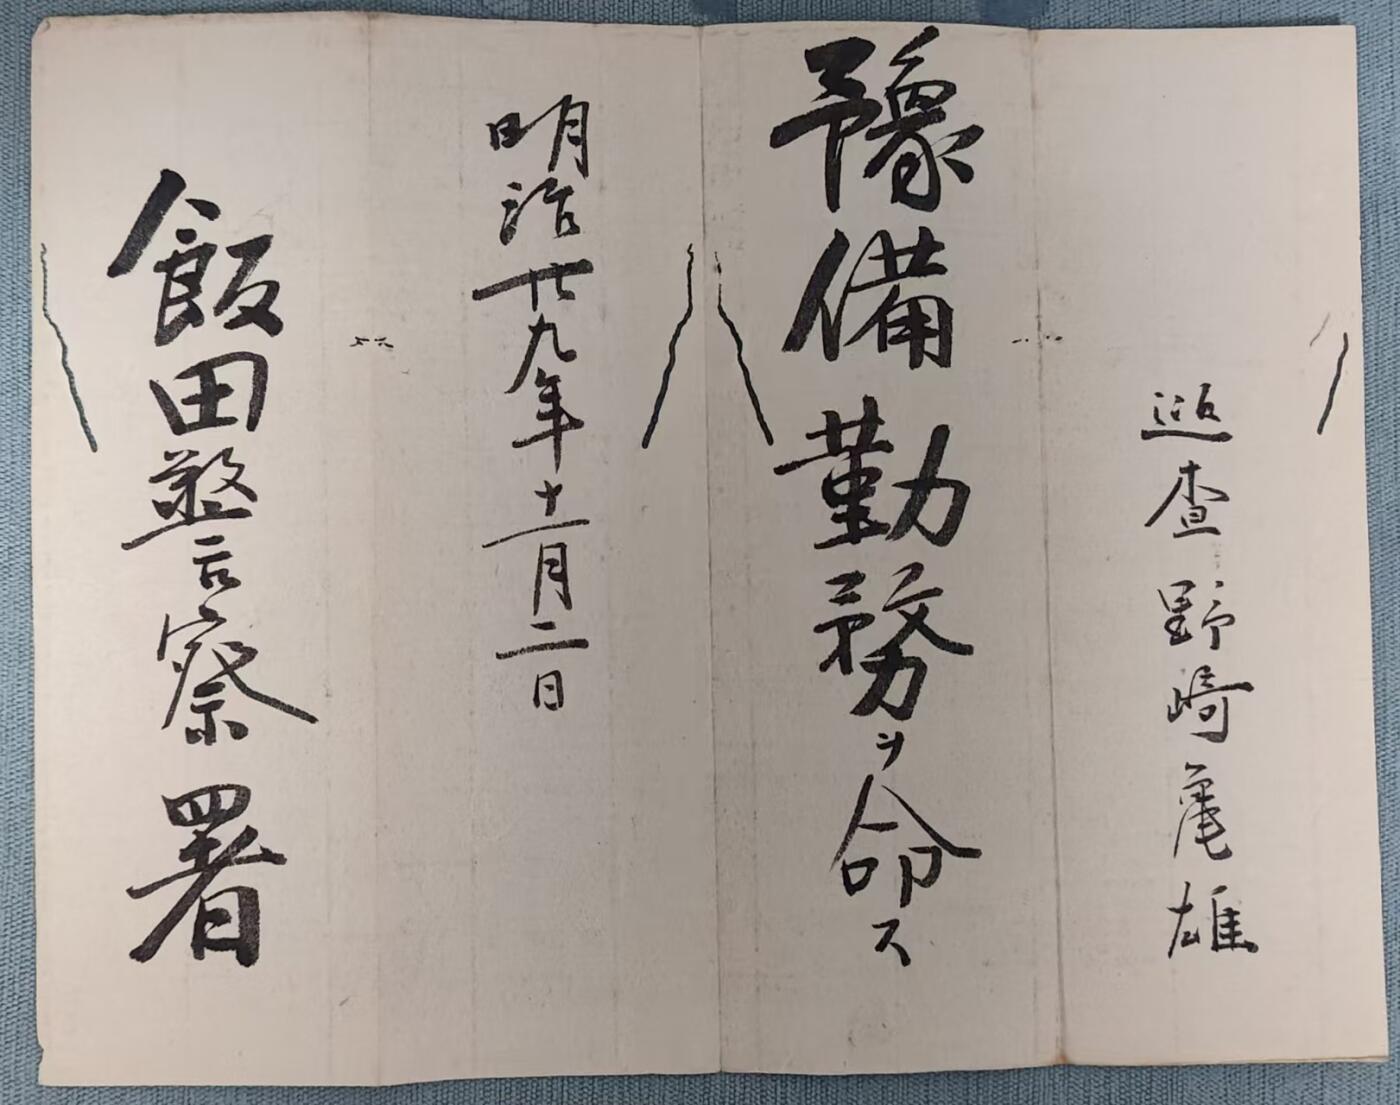 巡查野﨑亀雄
豫備勤務ヲ命ス
明治廿九年十一月二日
飯田警察署